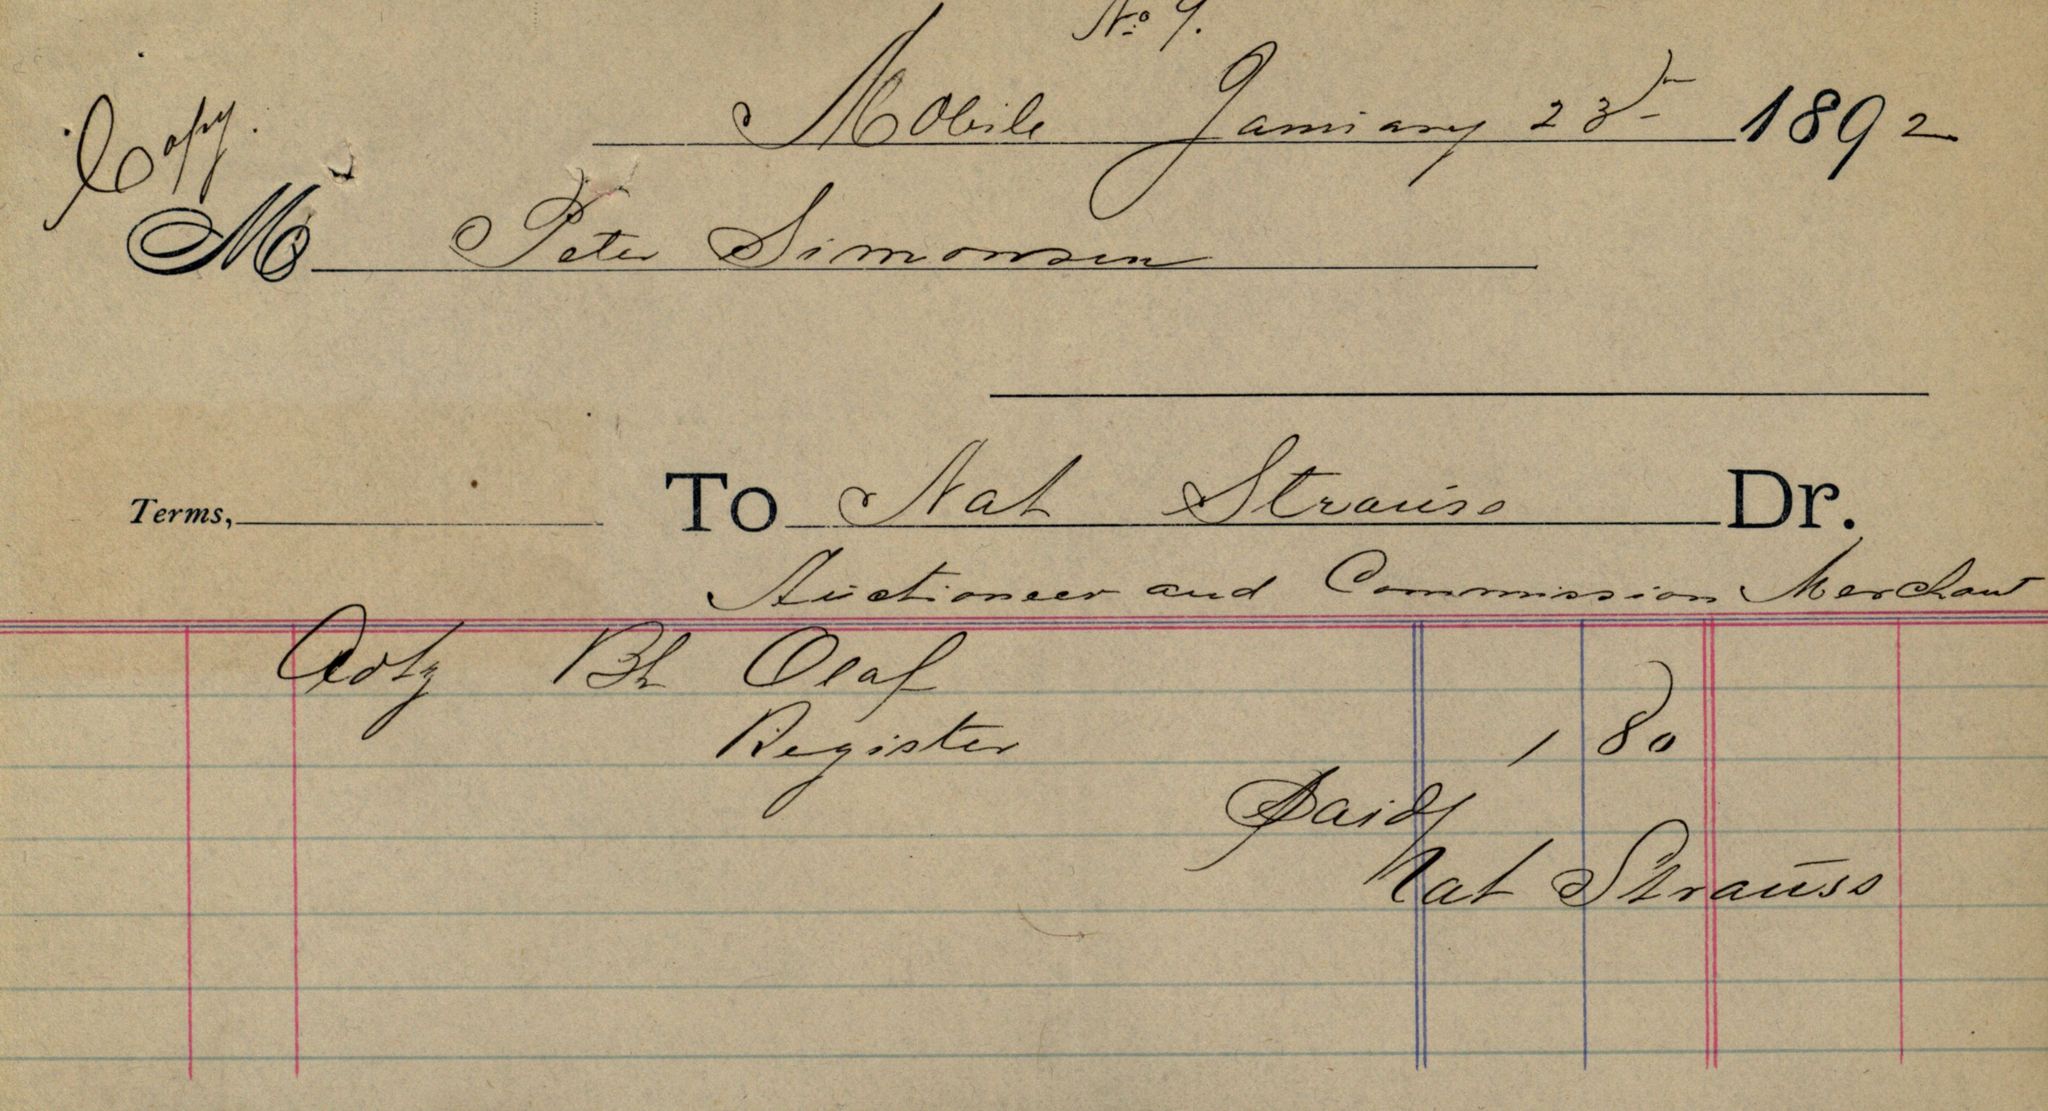 No. 9.
Mobile January 23d 1892
Copy.
M Peter Simonsen
Terms, To Nat Strauss Dr.
Auctioneer and Commission Merchant
Advtg Bk Olaf
Register 1 80
Paid
Nat Strauss